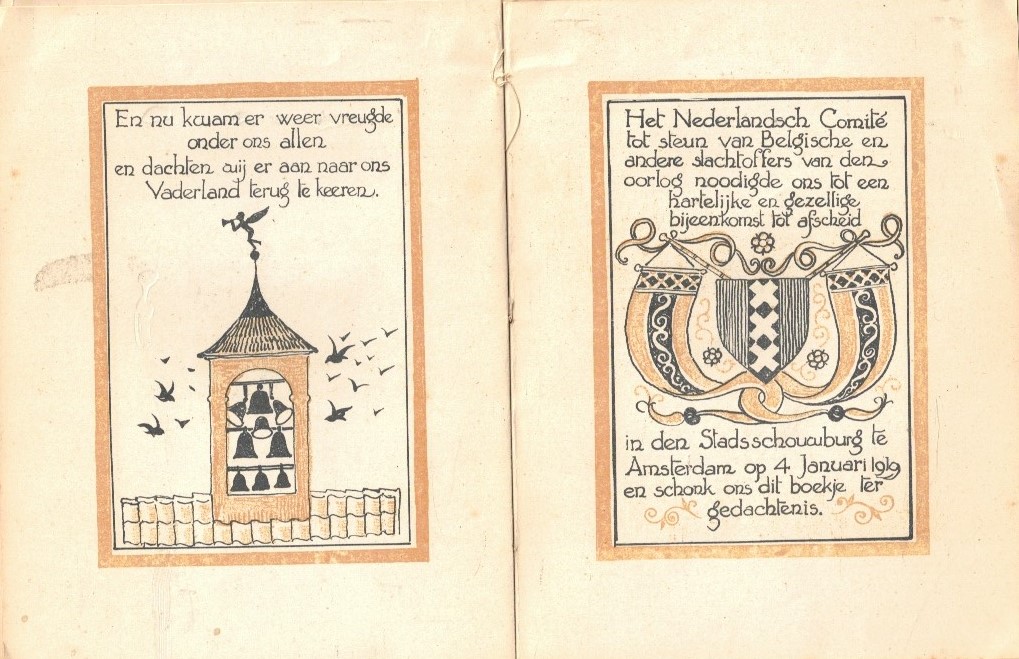 En nu kwam er weer vreugde
onder ons allen
en dachten wij er aan naar ons
Vaderland terug te keeren.
Het Nederlandsch Comité
tot steun van Belgische en
andere slachtoffers van den
oorlog noodigde ons tot een
hartelijke en gezellige
bijeenkomst tot afscheid
in den Stadsschouwburg te
Amsterdam op 4 Januari 1919
en schonk ons dit boekje ter
gedachtenis.